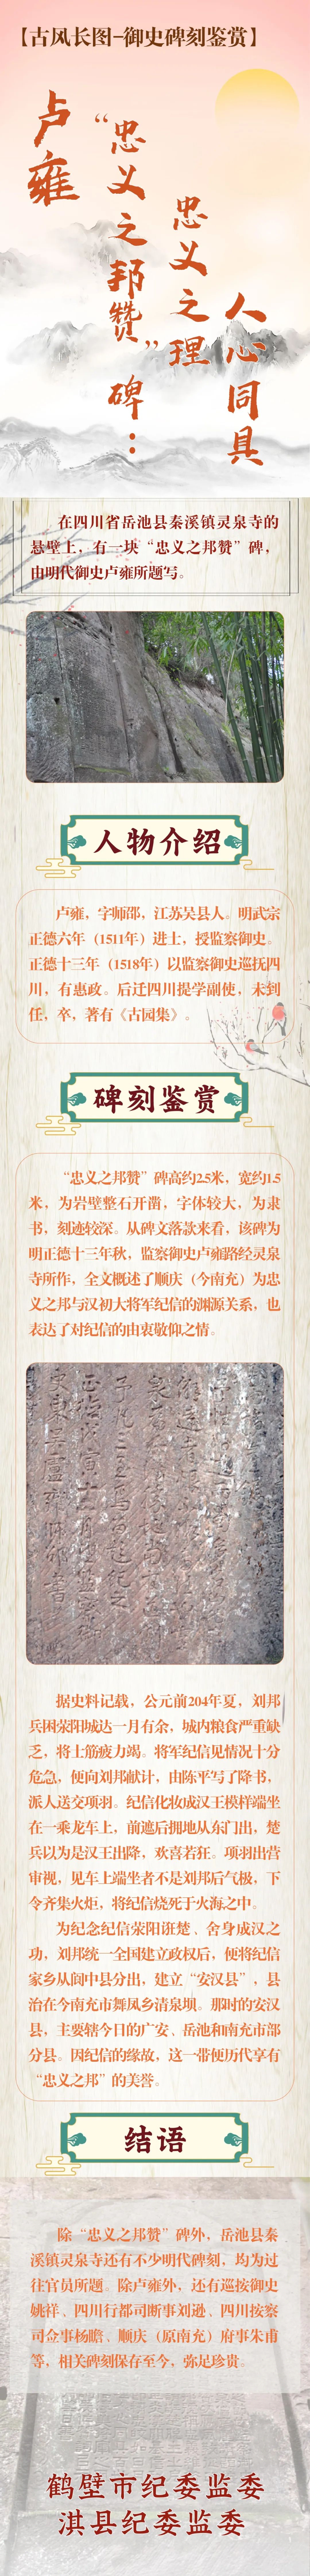 【古风长图-御史碑刻鉴赏】
卢雍
“忠义之邦赞”碑：
忠义之理
人心同具
在四川省岳池县秦溪镇灵泉寺的
悬壁上，有一块“忠义之邦赞”碑，
由明代御史卢雍所题写。
人物介绍
卢雍，字师邵，江苏吴县人。明武宗
正德六年（1511年）进士，授监察御史。
正德十三年（1518年）以监察御史巡抚四
川，有惠政。后迁四川提学副使，未到
任，卒，著有《古园集》。
碑刻鉴赏
“忠义之邦赞”碑高约2.5米，宽约1.5
米，为岩壁整石开凿，字体较大，为隶
书，刻迹较深。从碑文落款来看，该碑为
明正德十三年秋，监察御史卢雍路经灵泉
寺所作，全文概述了顺庆（今南充）为忠
义之邦与汉初大将军纪信的渊源关系，也
表达了对纪信的由衷敬仰之情。
据史料记载，公元前204年夏，刘邦
兵困荥阳城达一月有余，城内粮食严重缺
乏，将士筋疲力竭。将军纪信见情况十分
危急，便向刘邦献计，由陈平写了降书，
派人送交项羽。纪信化妆成汉王模样端坐
在一乘龙车上，前遮后拥地从东门出，楚
兵以为是汉王出降，欢喜若狂。项羽出营
审视，见车上端坐者不是刘邦后气极，下
令齐集火炬，将纪信烧死于火海之中。
为纪念纪信荥阳诳楚、舍身成汉之
功，刘邦统一全国建立政权后，便将纪信
家乡从阆中县分出，建立“安汉县”，县
治在今南充市舞凤乡清泉坝。那时的安汉
县，主要辖今日的广安、岳池和南充市部
分县。因纪信的缘故，这一带便历代享有
“忠义之邦”的美誉。
结语
除“忠义之邦赞”碑外，岳池县秦
溪镇灵泉寺还有不少明代碑刻，均为过
往官员所题。除卢雍外，还有巡按御史
姚祥、四川行都司断事刘逊、四川按察
司佥事杨瞻、顺庆（原南充）府事朱甫
等，相关碑刻保存至今，弥足珍贵。
鹤壁市纪委监委
淇县纪委监委